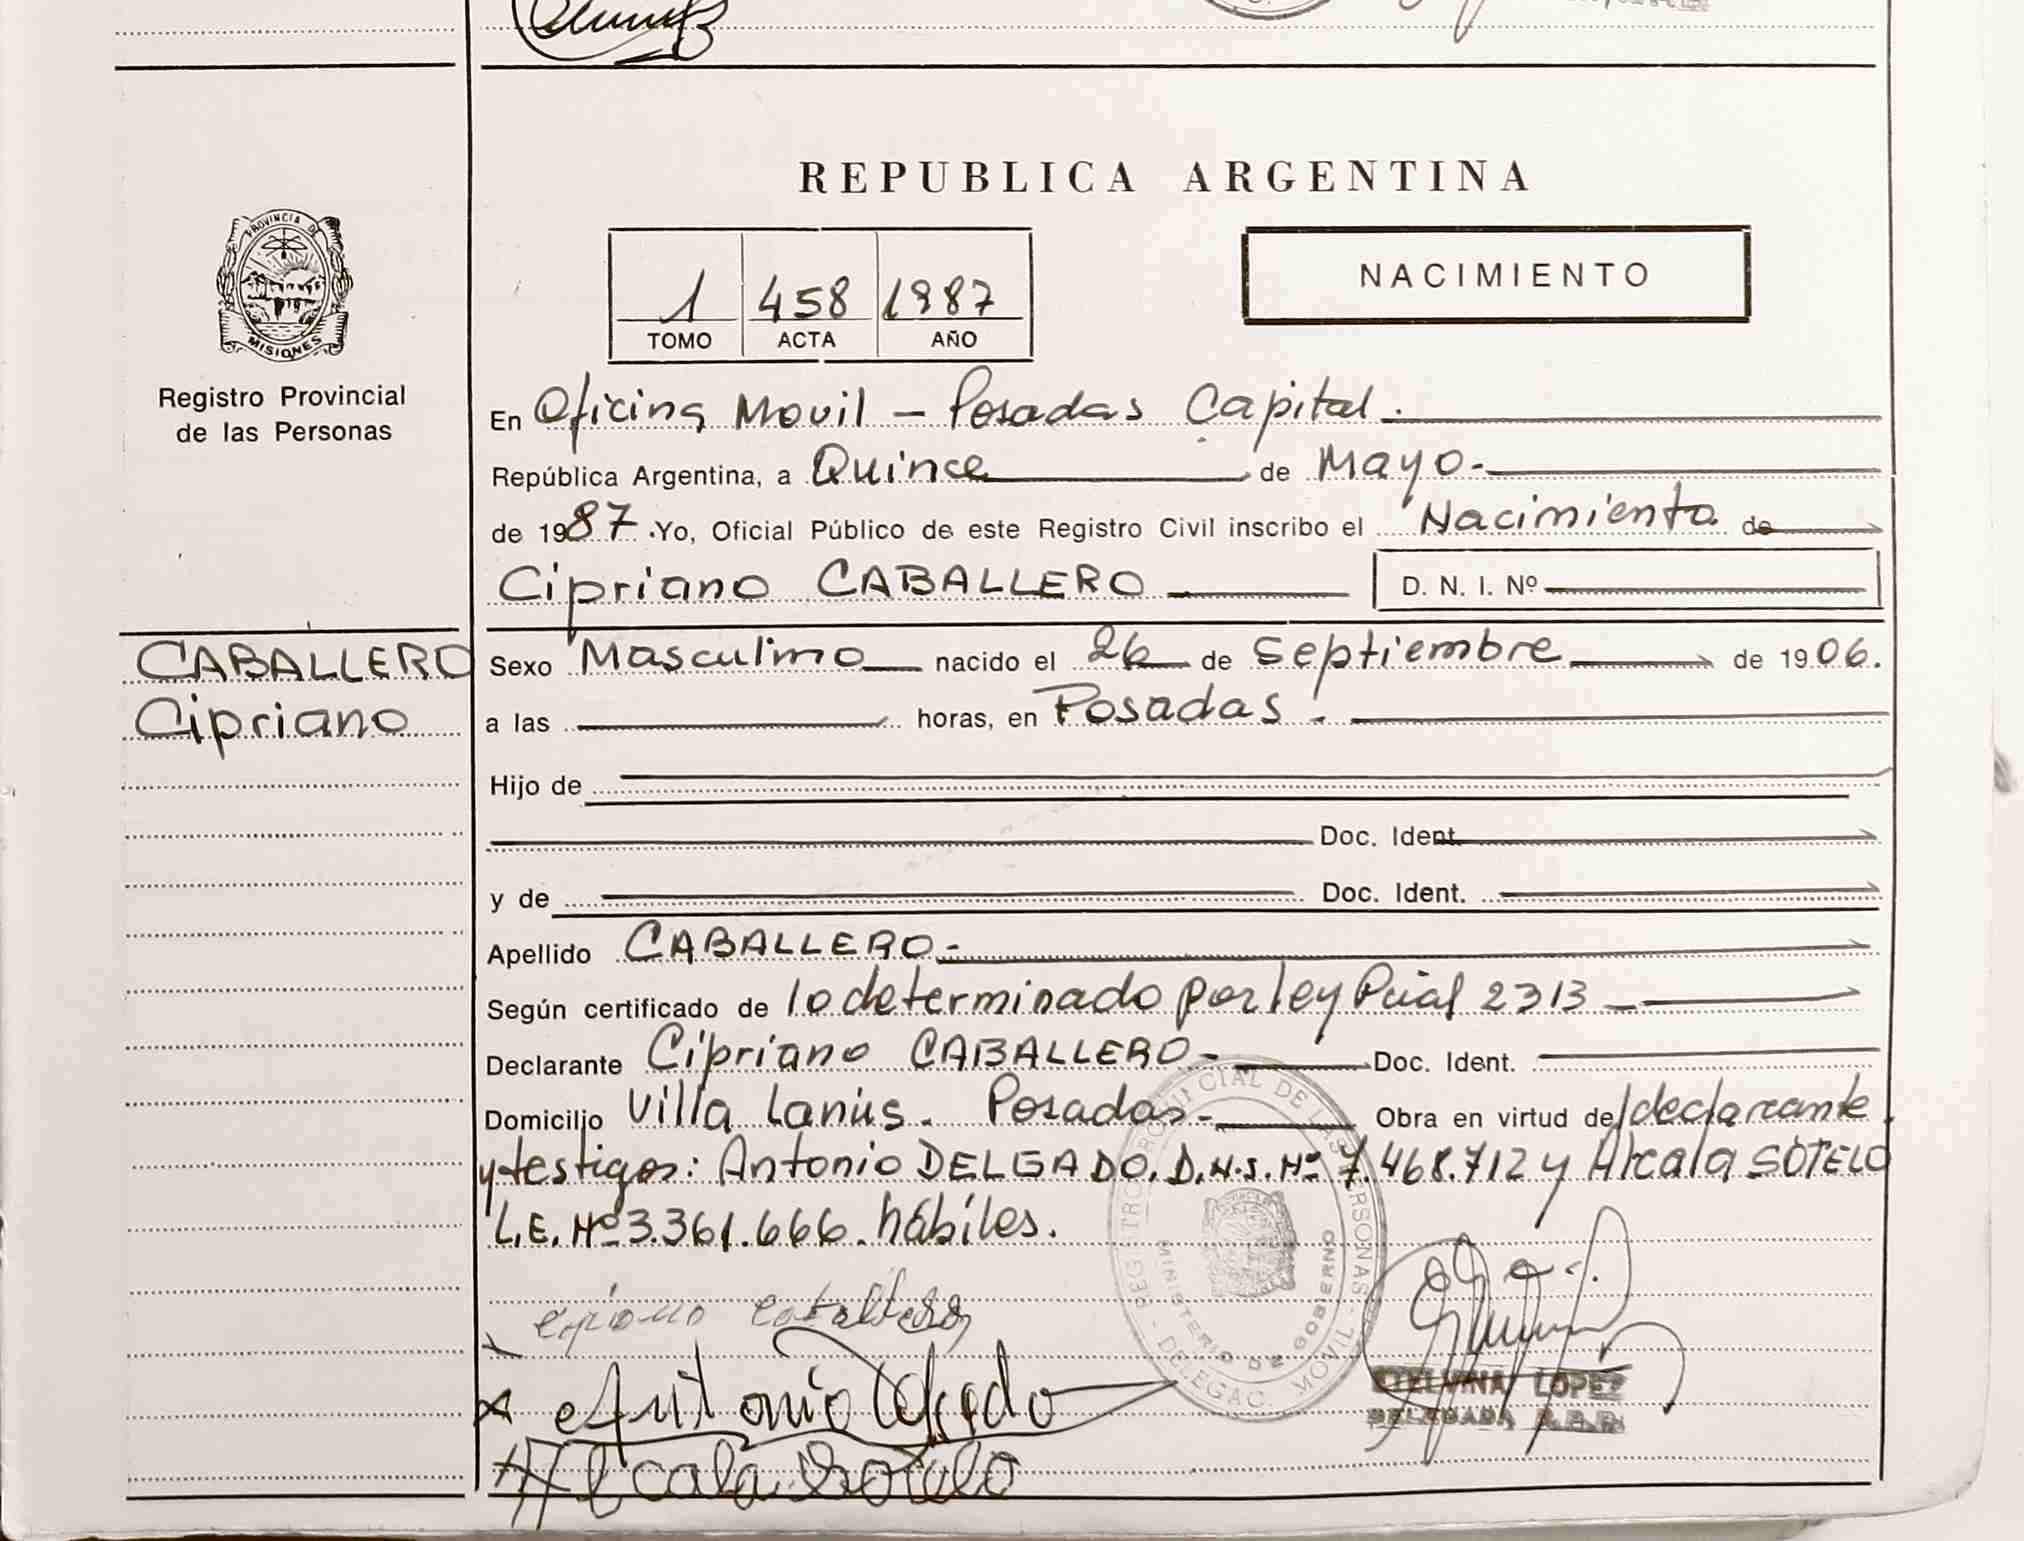 REPUBLICA ARGENTINA
PROVINCIA DE
MISIONES
Registro Provincial
de las Personas
1 458 1987
TOMO ACTA AÑO
NACIMIENTO
En Oficina Movil - Posadas Capital.
República Argentina, a Quince de Mayo.-
de 1987. Yo, Oficial Público de este Registro Civil inscribo el Nacimiento de
Cipriano CABALLERO D. N. I. Nº
CABALLERO
Cipriano
Sexo Masculino nacido el 26 de Septiembre de 1906.
a las horas, en Posadas.
Hijo de
Doc. Ident.
y de Doc. Ident.
Apellido CABALLERO.-
Según certificado de lo determinado por ley Pcial 2313
Declarante Cipriano CABALLERO.- Doc. Ident.
Domicilio Villa Lanús. Posadas.- Obra en virtud de/declarante
y testigos: Antonio DELGADO. D.N.I. Nº 7.468.712 y Alcala SOTELO
L.E. Nº 3.361.666. hábiles.
REGISTRO PROVINCIAL DE LAS PERSONAS - DELEGAC. MOVIL -
MINISTERIO DE GOBIERNO
Antonio Delgado
Alcala Sotelo
ETELVINA LOPEZ
DELEGADA